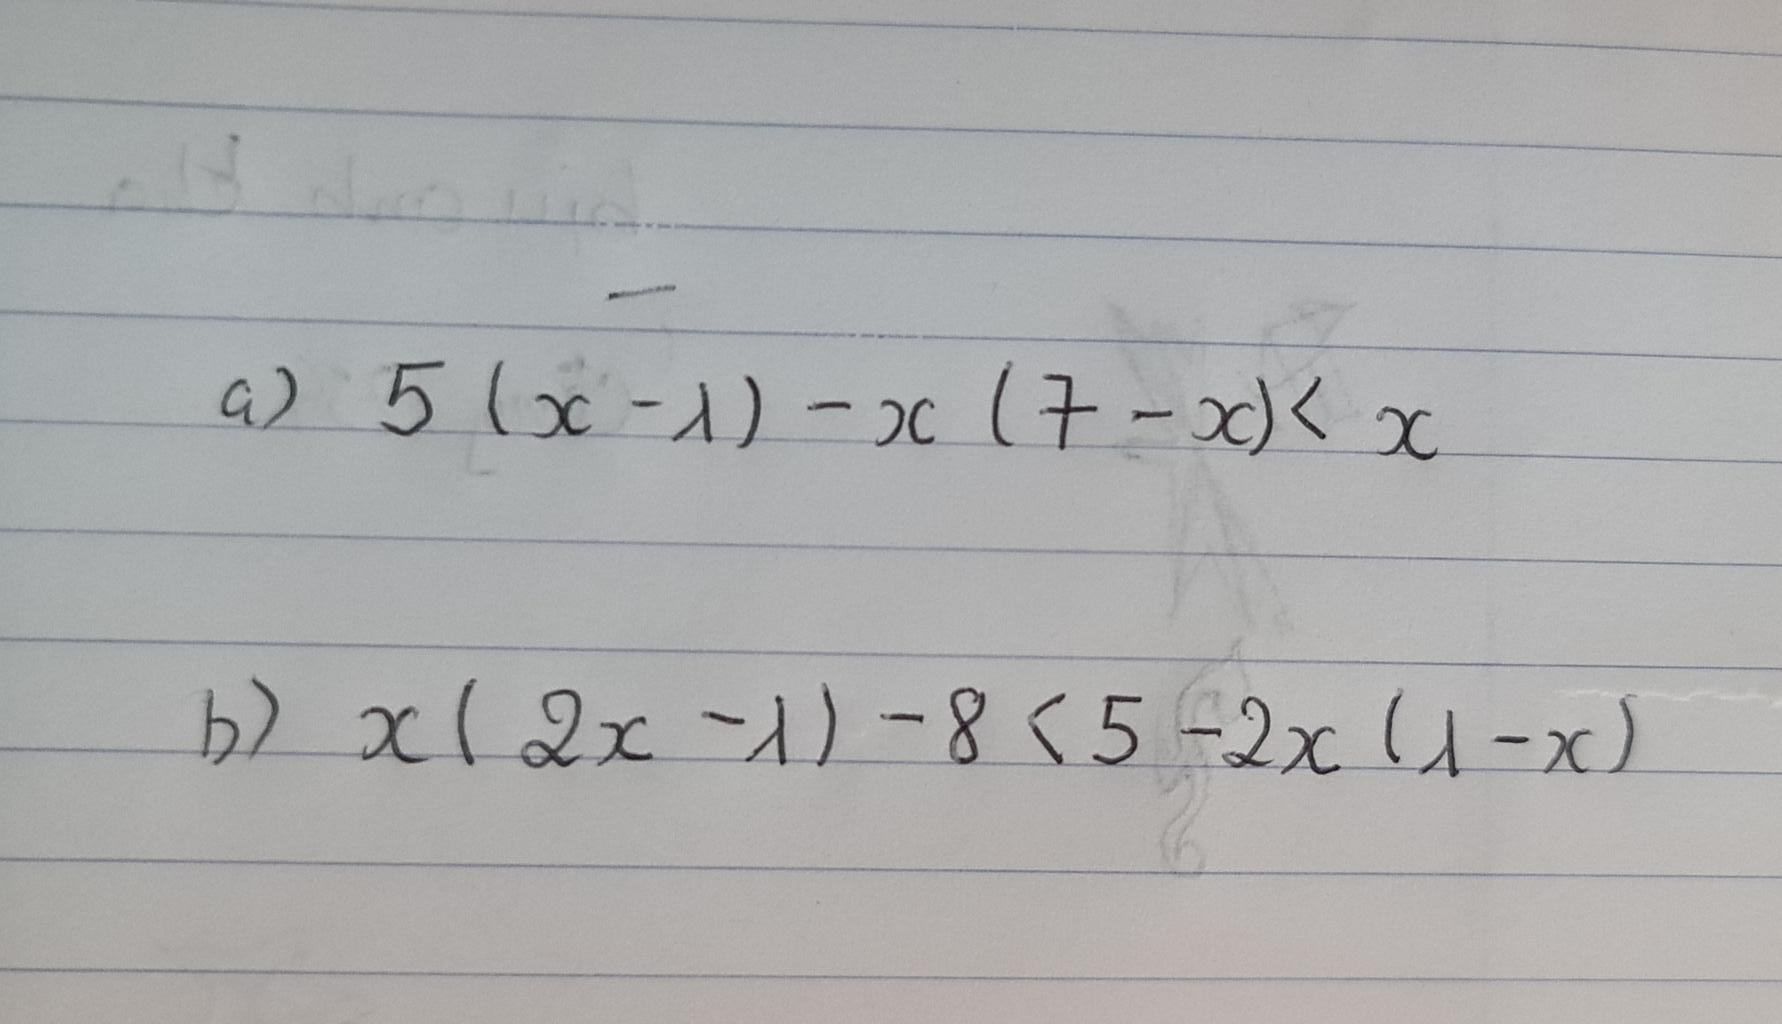 a) 5 (x - 1) - x (7 - x) < x
b) x ( 2x - 1) - 8 < 5 - 2x (1 - x)